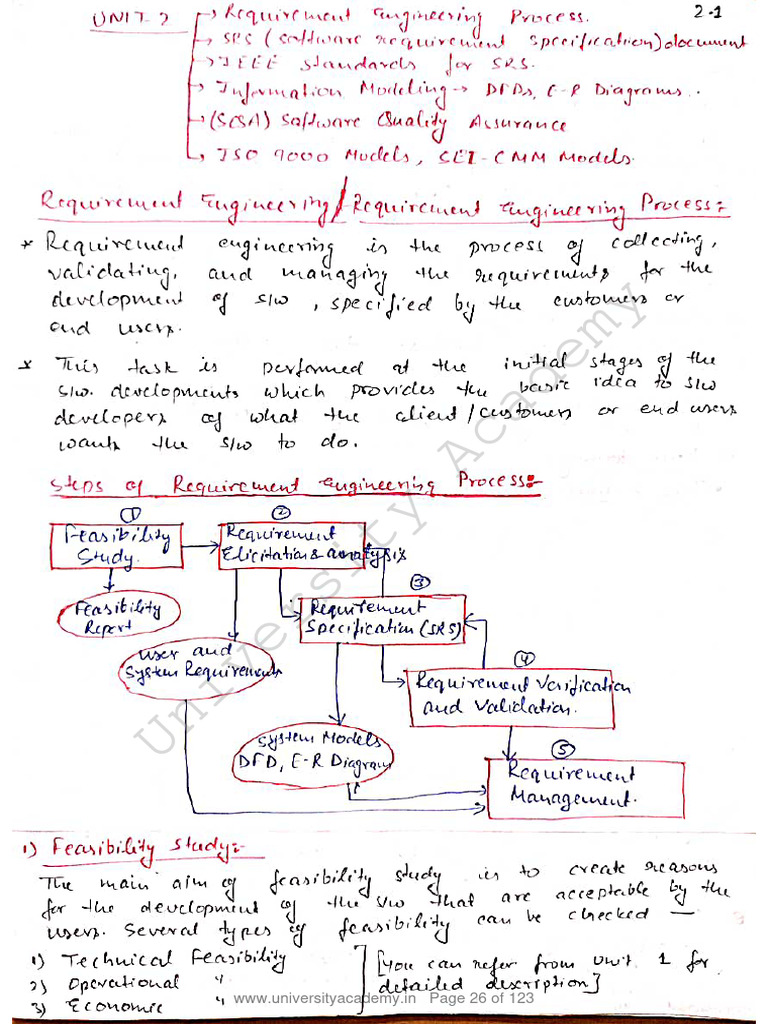 UNIT-2
2.1
→ Requirement Engineering Process.
→ SRS (Software requirement specification) document
→ IEEE standards for SRS.
→ Information Modeling → DFDs, E-R Diagrams..
→ (SQA) Software Quality Assurance
→ ISO 9000 Models, SEI-CMM Models.
Requirement Engineering / Requirement Engineering Process:-
* Requirement engineering is the process of collecting,
validating, and managing the requirements for the
development of s/w, specified by the customers or
end users.
* This task is performed at the initial stages of the
s/w. developments which provides the basic idea to s/w
developers of what the client/customers or end users
wants the s/w to do.
Steps of Requirement Engineering Process:-
①
Feasibility
Study.
②
Requirement
Elicitation & analysis
Feasibility
Report
③
Requirement
Specification (SRS)
User and
System Requirements
④
Requirement Verification
and Validation.
System Models
DFD, E-R Diagram
⑤
Requirement
Management.
1) Feasibility Study:-
The main aim of feasibility study is to create reasons
for the development of the s/w that are acceptable by the
users. Several types of feasibility can be checked —
1) Technical Feasibility
2) Operational "
3) Economic "
[You can refer from Unit 1 for
detailed description]
University Academy
www.universityacademy.in Page 26 of 123